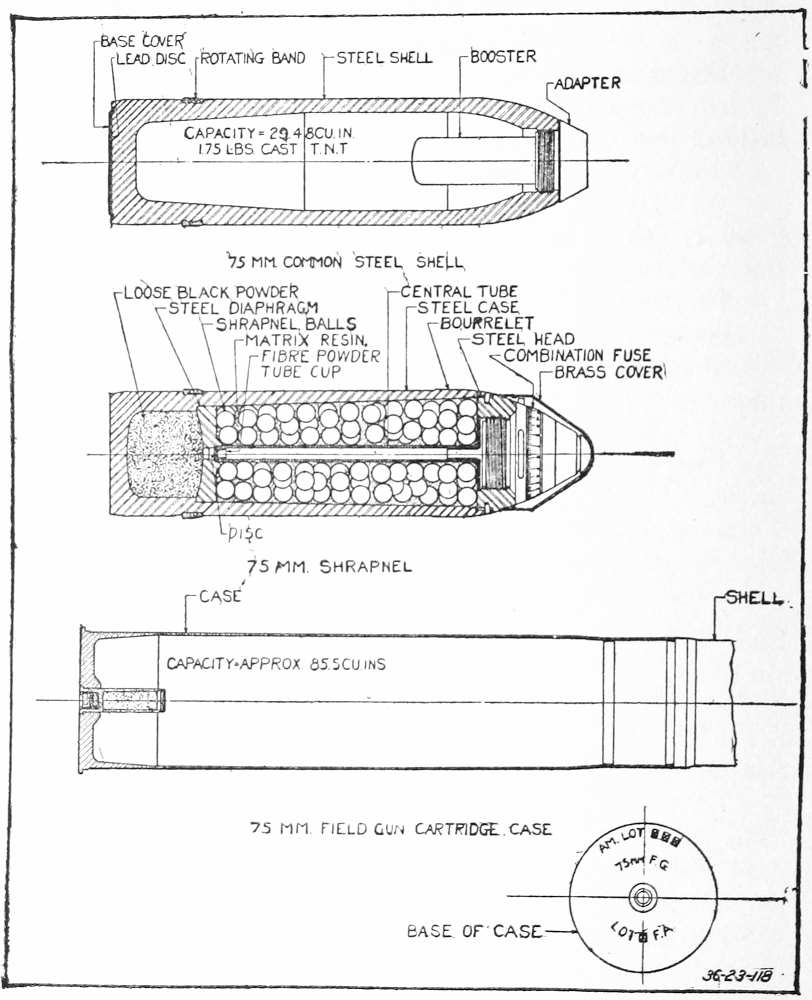 BASE COVER
LEAD DISC
ROTATING BAND
STEEL SHELL
BOOSTER
ADAPTER
CAPACITY = 29.48 CU. IN.
1.75 LBS CAST T.N.T
75 MM. COMMON STEEL SHELL
LOOSE BLACK POWDER
STEEL DIAPHRAGM
SHRAPNEL BALLS
MATRIX RESIN.
FIBRE POWDER
TUBE CUP
CENTRAL TUBE
STEEL CASE
BOURRELET
STEEL HEAD
COMBINATION FUSE
BRASS COVER
DISC
75 MM. SHRAPNEL
CASE
SHELL
CAPACITY=APPROX 85.5 CU INS
75 MM. FIELD GUN CARTRIDGE CASE
AM. LOT
75MM F.G
LOT F.A
BASE OF CASE
36-23-118